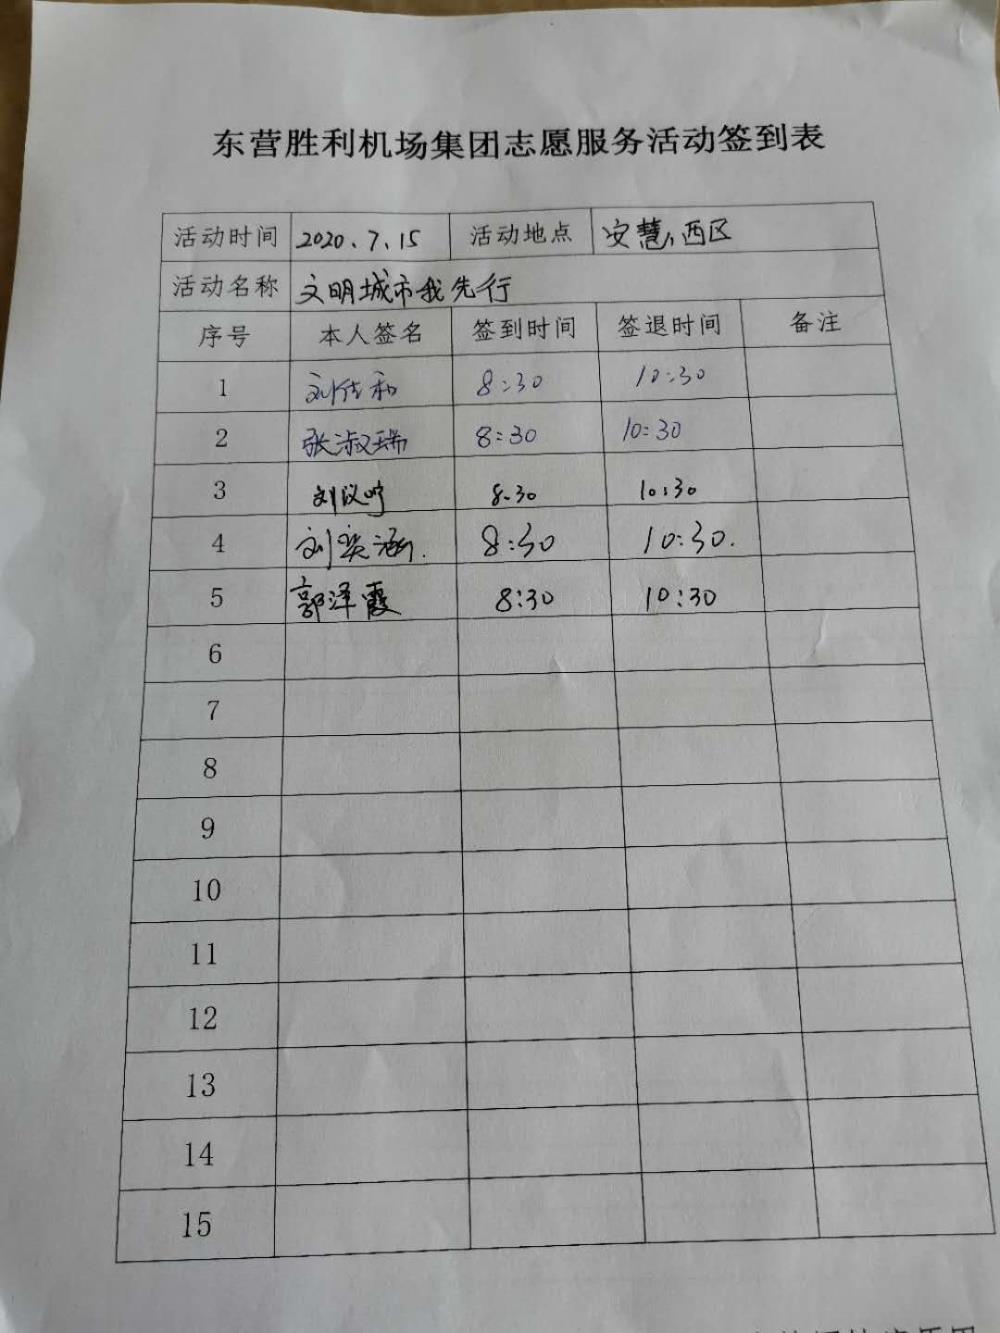 东营胜利机场集团志愿服务活动签到表
活动时间 2020.7.15 活动地点 安慧,西区
活动名称 文明城市我先行
序号 本人签名 签到时间 签退时间 备注
1 刘佳和 8:30 10:30
2 张淑瑞 8:30 10:30
3 刘议 8.30 10:30
4 刘奕涵. 8:30 10:30.
5 郭泽霞 8:30 10:30
6
7
8
9
10
11
12
13
14
15